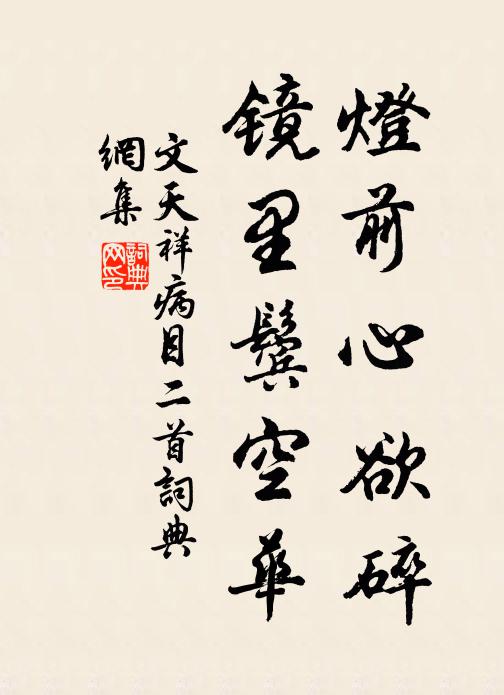 燈前心欲碎
镜里鬓空華
文天祥病目二首詞典
網集
詞典
网印